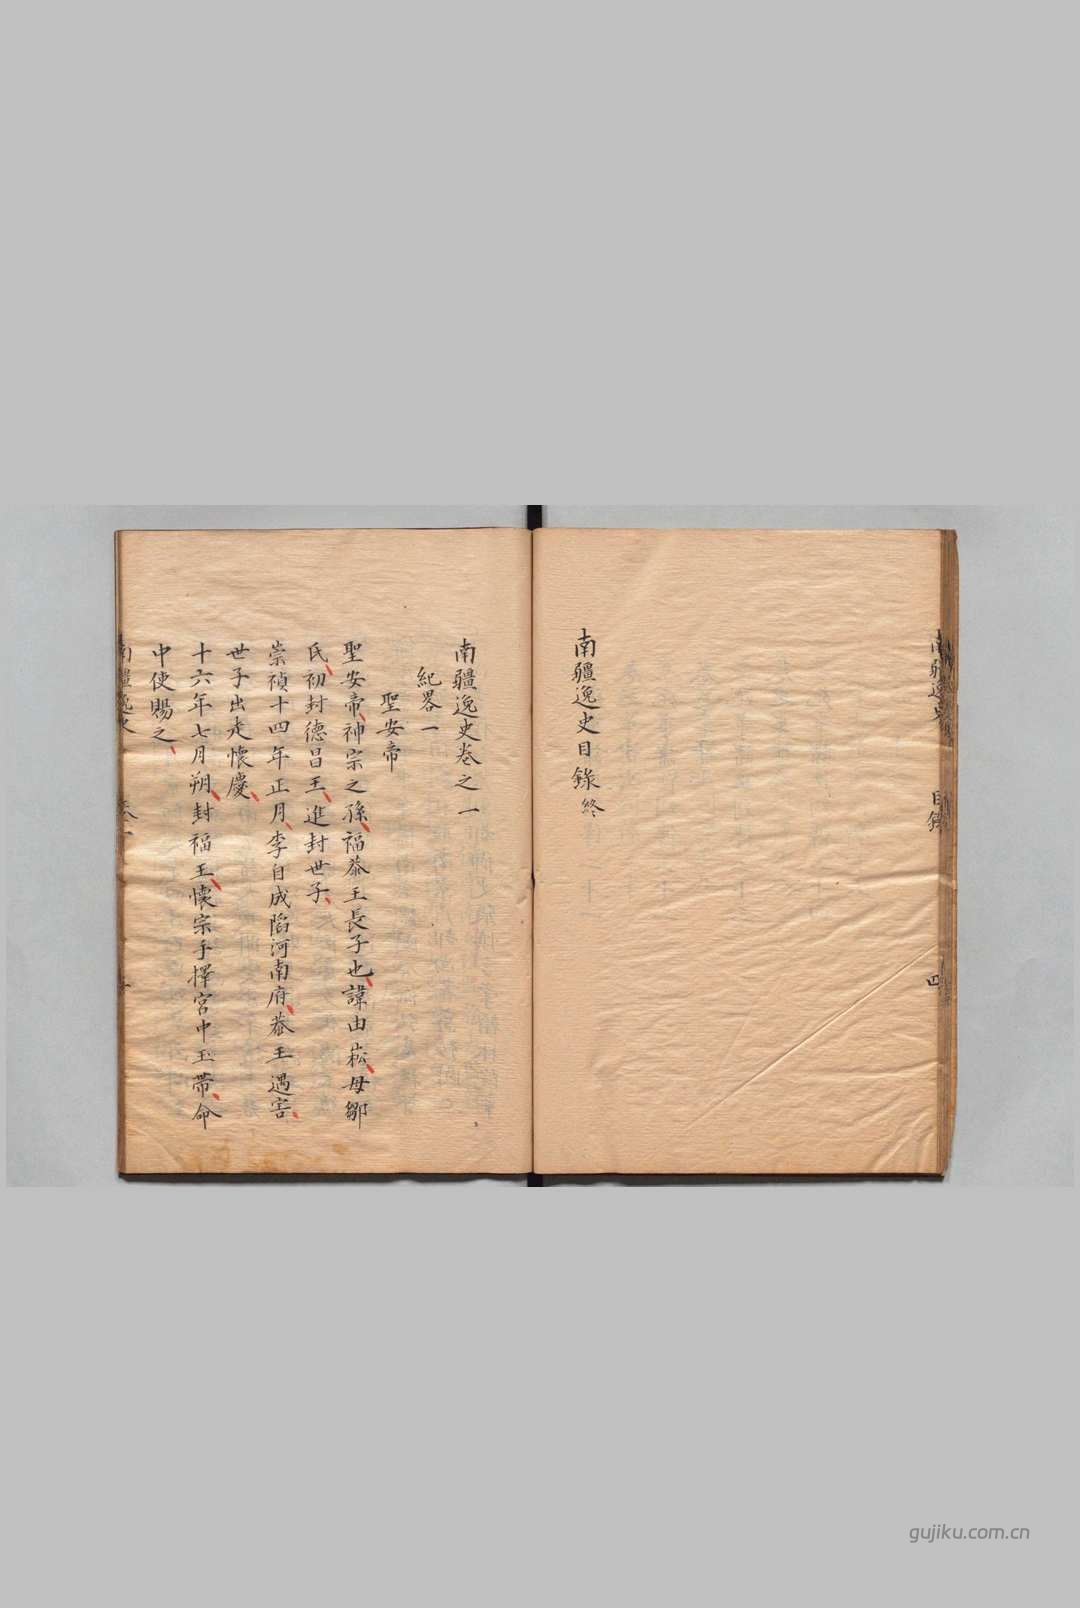 南疆逸史目錄終
南疆逸史卷之一
紀畧一
聖安帝
聖安帝神宗之孫福恭王長子也諱由崧母鄒
氏初封德昌王進封世子
崇禎十四年正月李自成陷河南府恭王遇害
世子出走懷慶
十六年七月朔封福王懷宗手擇宮中玉帶命
中使賜之
南疆逸史
目錄
四
南疆逸史
gujiku.com.cn